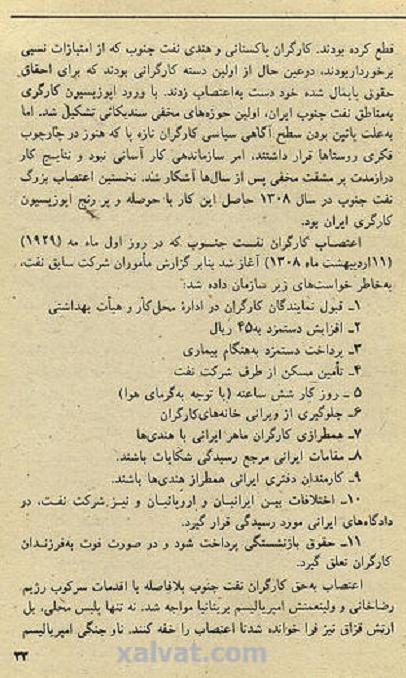 قطع کرده بودند. کارگران پاکستانی و هندی نفت جنوب که از امتیازات نسبی
برخورداربودند، درعین حال از اولین دسته کارگرانی بودند که برای احقاق
حقوق پایمال شده خود دست به‌اعتصاب زدند. با ورود اپوزیسیون کارگری
به‌مناطق نفت جنوب ایران، اولین حوزه‌های مخفی سندیکائی تشکیل شد. اما
به‌علت پائین بودن سطح آگاهی سیاسی کارگران تازه پا که هنوز در چارچوب
فکری روستاها قرار داشتند، امر سازماندهی کار آسانی نبود و نتایج کار
درازمدت پر مشقت مخفی پس از سال‌ها آشکار شد. نخستین اعتصاب بزرگ
نفت جنوب در سال ۱۳۰۸ حاصل این کار با حوصله و پر رنج اپوزیسیون
کارگری ایران بود.
اعتصاب کارگران نفت جنوب که در روز اول ماه مه (۱۹۲۹)
(۱۱اردیبهشت ماه ۱۳۰۸) آغاز شد بنابر گزارش مأموران شرکت سابق نفت،
به‌خاطر خواست‌های زیر سازمان داده شد:
۱ـ قبول نمایندگان کارگران در ادارهٔ محل‌کار و هیأت بهداشتی
۲ـ افزایش دستمزد به‌۴۵ ریال
۳ـ پرداخت دستمزد به‌هنگام بیماری
۴ـ تأمین مسکن از طرف شرکت نفت
۵ ـ روز کار شش ساعته (با توجه به‌گرمای هوا)
۶ـ جلوگیری از ویرانی خانه‌های‌کارگران
۷ـ همطرازی کارگران ماهر ایرانی با هندی‌ها
۸ـ مقامات ایرانی مرجع رسیدگی شکایات باشند.
۹ـ کارمندان دفتری ایرانی همطراز هندی‌ها باشند.
۱۰ـ اختلافات بین ایرانیان و اروپائیان و نیز شرکت نفت، در
دادگاه‌های ایرانی مورد رسیدگی قرار گیرد.
۱۱ـ حقوق بازنشستگی پرداخت شود و در صورت فوت به‌فرزندان
کارگران تعلق گیرد.
اعتصاب به‌حق کارگران نفت جنوب بلافاصله با اقدمات سرکوب رژیم
رضاخانی و ولینعمتش امپریالیسم بریتانیا مواجه شد. نه تنها پلیس محلی، بل
ارتش قزاق نیز فرا خوانده شدتا اعتصاب را خفه کنند. ناو جنگی امپریالیسم
۳۳
xalvat.com